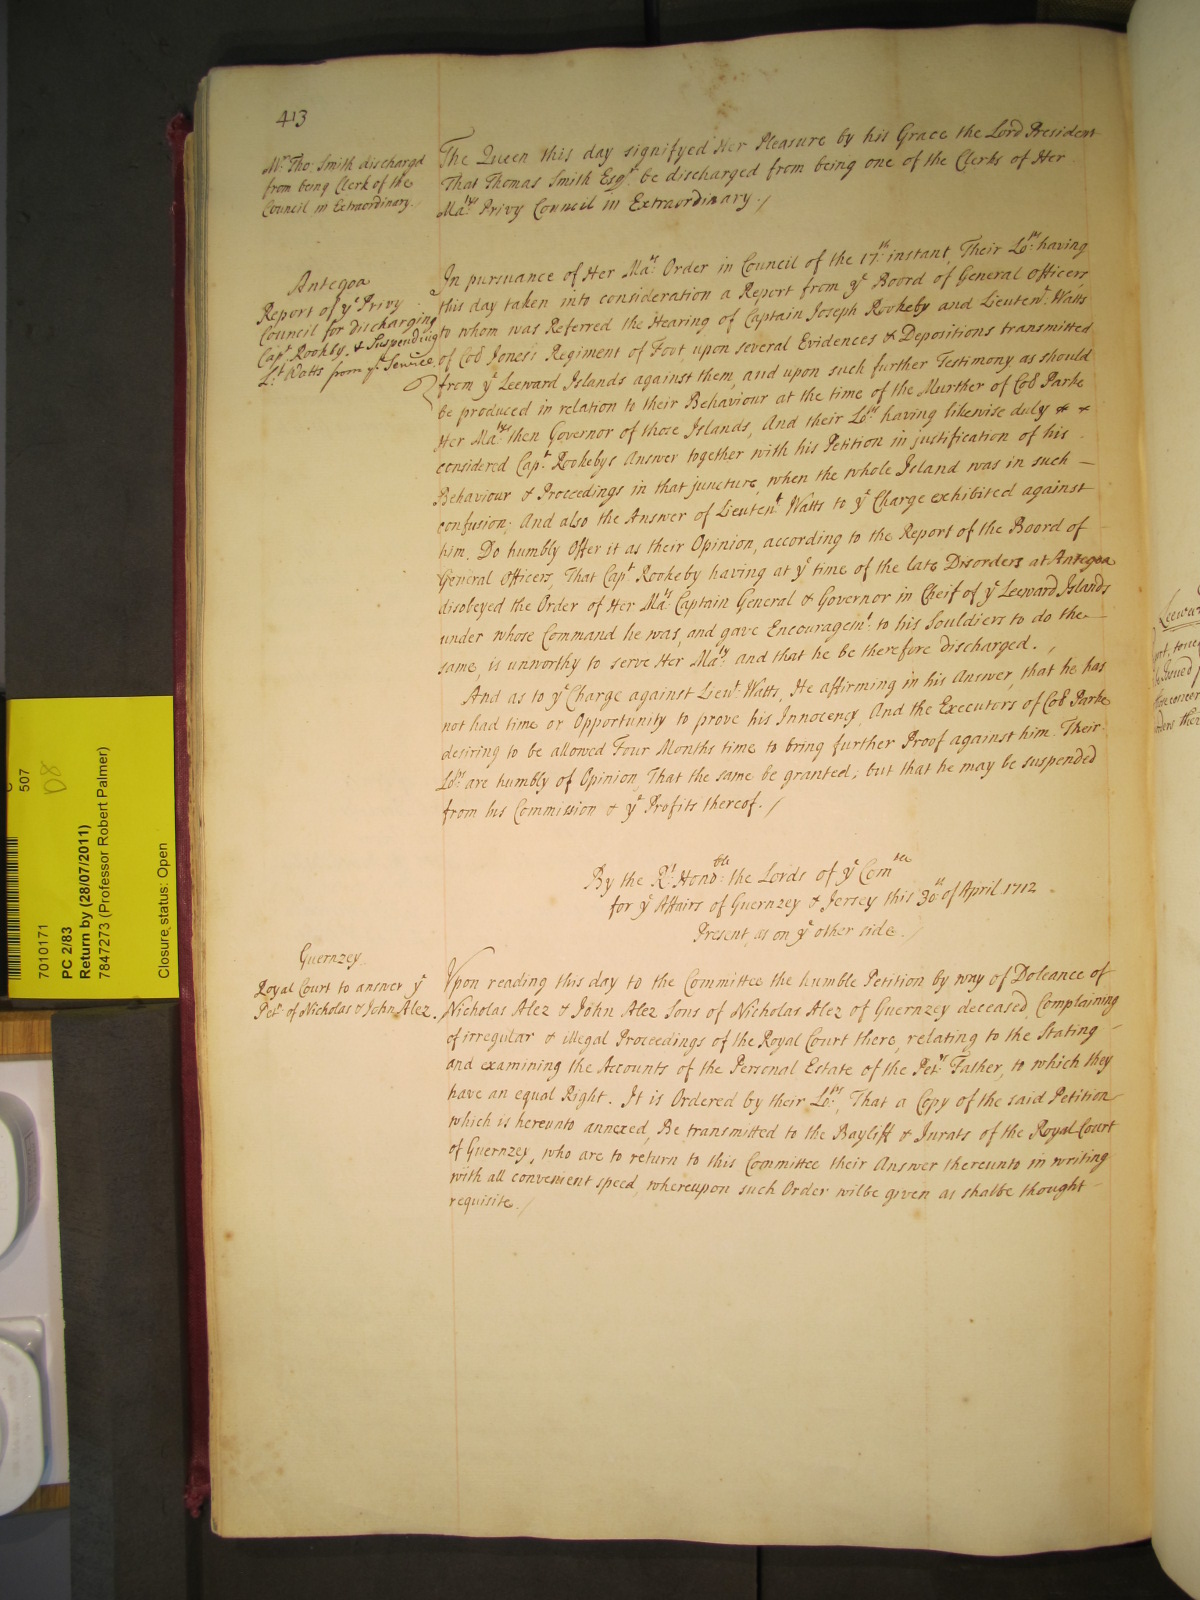 413
Mr. Tho: Smith dischargd
from being Clerk of the
Council in Extraordinary. /
The Queen this day signifyed Her Pleasure by his Grace the Lord President
That Thomas Smith Esqr. be discharged from being one of the Clerks of Her
Matys Privy Council in Extraordinary. /
Antegoa
Report of ye Privy
Council for discharging
Capt. Rookby. & Suspending
Lt. Watts from ye Service.
In pursuance of Her Mats. Order in Council of the 17th. instant, Their Lops. having
this day taken into consideration a Report from ye Board of General Officers,
to whom was Referred the Hearing of Captain Joseph Rookeby and Lieutent. Watts
of Coll Jones's Regiment of Foot, upon several Evidences & Depositions transmitted
from ye Leeward Islands against them, and upon such further Testimony as should
be produced in relation to their Behaviour at the time of the Murther of Coll Parke
Her Matys then Governor of those Islands, And their Lops. having likewise duly
considered Capt. Rookebys Answer together with his Petition in justification of his
Behaviour & Proceedings in that juncture, when the whole Island was in such —
confusion; And also the Answer of Lieutent. Watts to ye Charge exhibited against
him. Do humbly Offer it as their Opinion, according to the Report of the Board of
General Officers, That Capt. Rookeby having at ye time of the late Disorders at Antegoa
disobeyed the Order of Her Mats. Captain General & Governor in Cheif of ye Leeward Islands
under whose Command he was, and gave Encouragemt. to his Souldiers to do the
same, is unworthy to serve Her Maty. and that he be therefore discharged. /
And as to ye Charge against Lieut. Watts, He affirming in his Answer, that he has
not had time or Opportunity to prove his Innocency, And the Executors of Coll Parke
desiring to be allowed Four Months time to bring further Proof against him. Their
Lops. are humbly of Opinion, That the same be granted, but that he may be suspended
from his Commission & ye Profits thereof. /
By the Rt. Honoble. the Lords of ye Comtee
for ye Affairs of Guernzey & Jersey this 30th. of April 1712
Present, as on ye other side. /
Guernzey.
Royal Court to answer ye
Petn. of Nicholas & John Alez.
Upon reading this day to the Committee the humble Petition by way of Doleance of
Nicholas Alez & John Alez Sons of Nicholas Alez of Guernzey deceased, Complaining
of irregular & illegal Proceedings of the Royal Court there, relating to the Stating
and examining the Accounts of the Personal Estate of the Petrs. Father, to which they
have an equal Right. It is Ordered by their Lops., That a Copy of the said Petition
which is hereunto annexed, Be transmitted to the Bayliff & Jurats of the Royal Court
of Guernzey, who are to return to this Committee their Answer thereunto in writing
with all convenient speed, whereupon such Order wilbe given as shalbe thought
requisite. /
507
D8
7010171
PC 2/83
Return by (28/07/2011)
7847273 (Professor Robert Palmer)
Closure status: Open